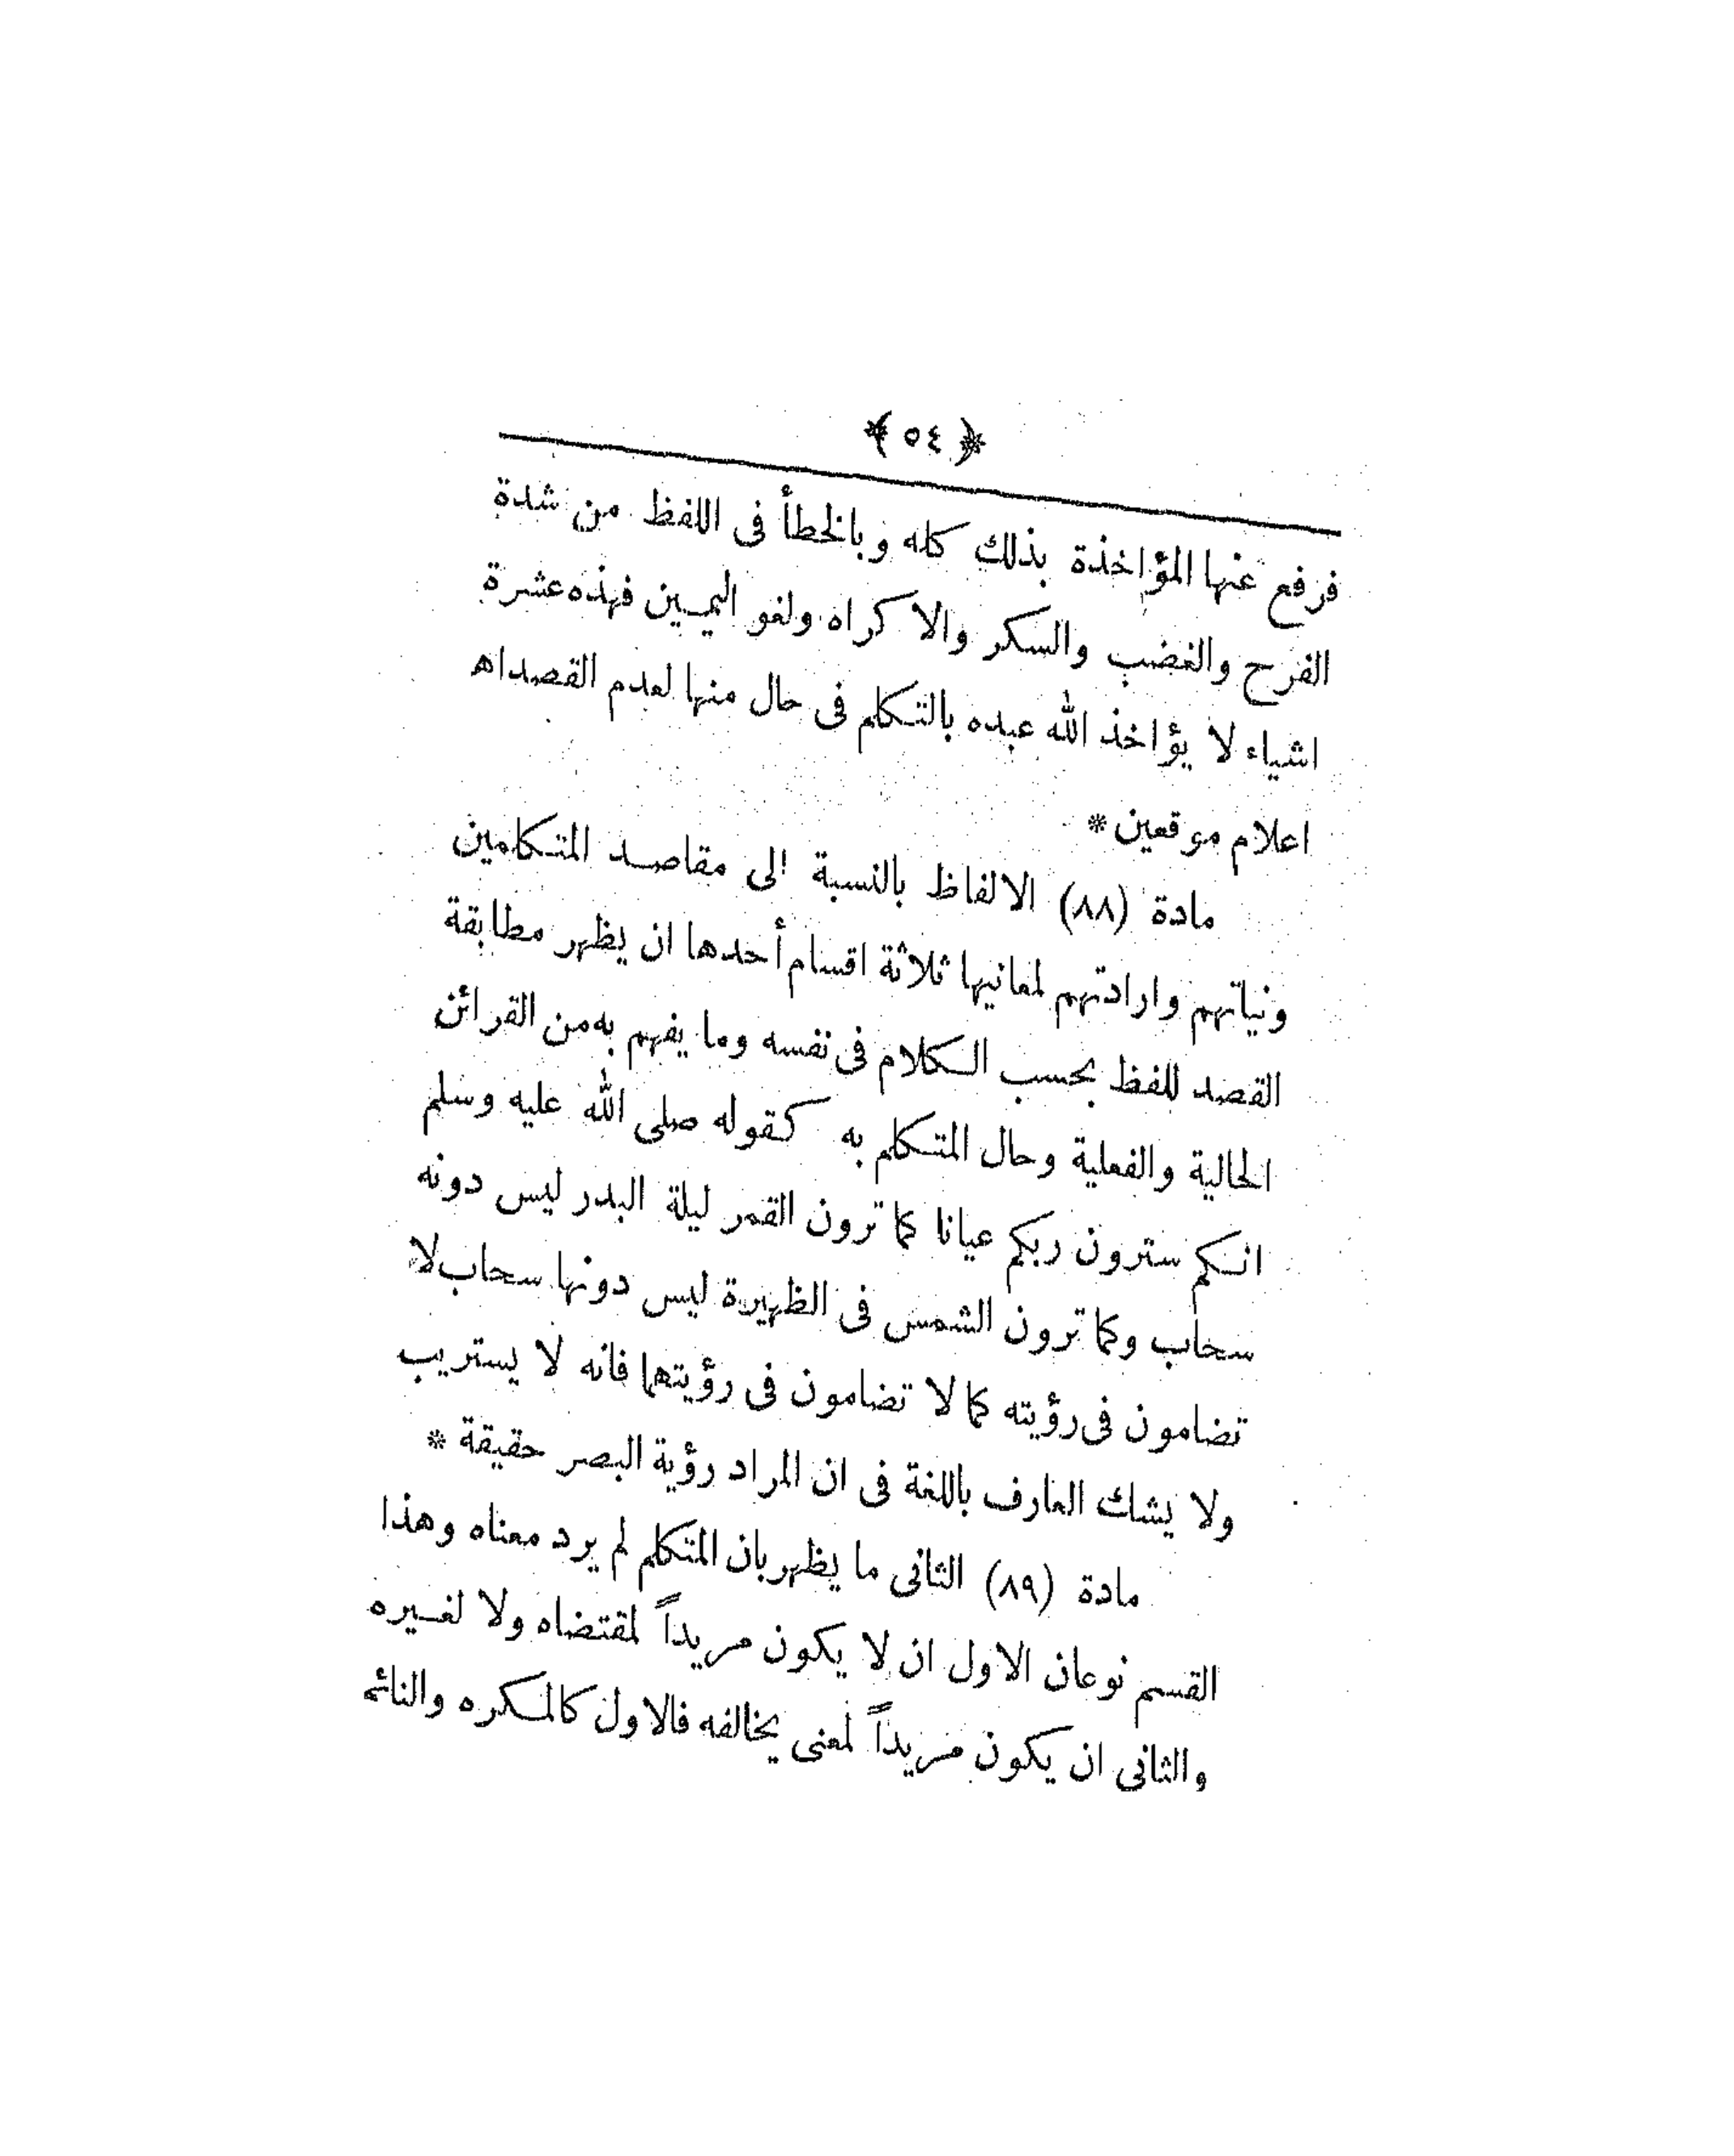 ﴿ ٥٤ ﴾
فرفع عنها المؤاخذة بذلك كله وبالخطأ فى اللفظ من شدة
الفرح والغضب والسكر والاكراه ولغو اليمين فهذه عشرة
اشياء لا يؤاخذ الله عبده بالتكلم فى حال منها لعدم القصد اه
اعلام موقعين *
مادة (٨٨) الالفاظ بالنسبة الى مقاصد المتكلمين
ونياتهم وارادتهم لمعانيها ثلاثة اقسام أحدها ان يظهر مطابقة
القصد للفظ بحسب الكلام فى نفسه وما يفهم به من القرائن
الحالية والفعلية وحال المتكلم به كقوله صلى الله عليه وسلم
انكم سترون ربكم عيانا كما ترون القمر ليلة البدر ليس دونه
سحاب وكما ترون الشمس فى الظهيرة ليس دونها سحاب لا
تضامون فى رؤيته كما لا تضامون فى رؤيتهما فانه لا يستريب
ولا يشك العارف باللغة فى ان المراد رؤية البصر حقيقة *
مادة (٨٩) الثانى ما يظهر بان المتكلم لم يرد معناه وهذا
القسم نوعان الاول ان لا يكون مريداً لمقتضاه ولا لغيره
والثانى ان يكون مريداً لمعنى يخالفه فالاول كالمكره والنائم